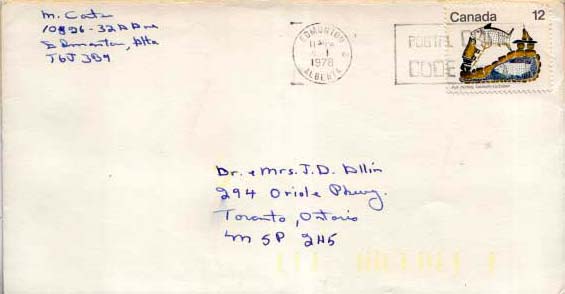 M. Catz
10826-32A Ave
Edmonton, Alta
T6J 3B9
EDMONTON
1
1978
ALBERTA
POSTAL
CODE
Canada 12
Dr. & Mrs. J. D. Allin
294 Oriole Pkwy.
Toronto, Ontario
M5P 2H5